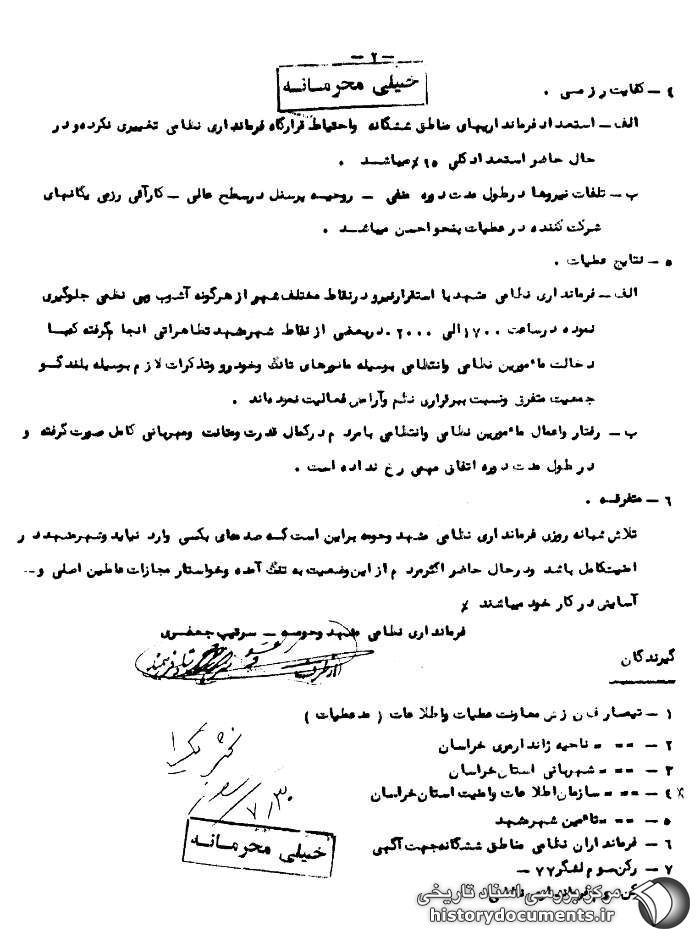 - ۲ -
خیلی محرمانه
٤ - کفایت رزمی .
الف - استعداد فرمانداریهای مناطق ششگانه واحتیاط قرارگاه فرمانداری نظامی تغییری نکرده و در
حال حاضر استعداد کلی ٦٥٪ میباشد .
ب - تلفات نیروها در طول مدت دوره منفی - روحیه پرسنل در سطح عالی - کارآئی رزمی یگانهای
شرکت کننده در عملیات بنحو احسن میباشد .
٥ - نتایج عملیات .
الف - فرمانداری نظامی مشهد با استقرار نیرو در نقاط مختلف شهر از هرگونه آشوب و بی نظمی جلوگیری
نموده در ساعت ۱۷۰۰ الی ۲۰۰۰ در بعضی از نقاط شهر مشهد تظاهراتی انجام گرفته که با
دخالت مأمورین نظامی وانتظامی بوسیله مانورهای تانک وخودرو وتذکرات لازم بوسیله بلندگو
جمعیت متفرق ونسبت ببرقراری نظم وآرامش فعالیت نموده اند .
ب - رفتار واعمال مأمورین نظامی وانتظامی با مردم در کمال قدرت ومتانت ومهربانی کامل صورت گرفته و
در طول مدت دوره اتفاق مهمی رخ نداده است .
٦ - متفرقه .
تلاش شبانه روزی فرمانداری نظامی مشهد وحومه براین است که صدمه‌ای بکسی وارد نیاید وشهر مشهد در
امنیت کامل باشد ودر حال حاضر اکثر مردم از این وضعیت به تنگ آمده وخواستار مجازات عاملین اصلی و--
آسایش در کار خود میباشند ٪
فرمانداری نظامی مشهد وحومه - سرتیپ جعفری
از طرف
گیرندگان
۱ - تیمسار فرماندهی معاونت عملیات واطلاعات ( مد عملیات )
۲ - " " ناحیه ژاندارمری خراسان
۳ - " " شهربانی استان خراسان
×٤ - " " سازمان اطلاعات وامنیت استان خراسان
٥ - " " تأمین شهر مشهد
٦ - فرمانداران نظامی مناطق ششگانه جهت آگهی
۷ - رکن سوم لشگر ۷۷ -
۷/۳۰
خیلی محرمانه
مرکز بررسی اسناد تاریخی
historydocuments.ir